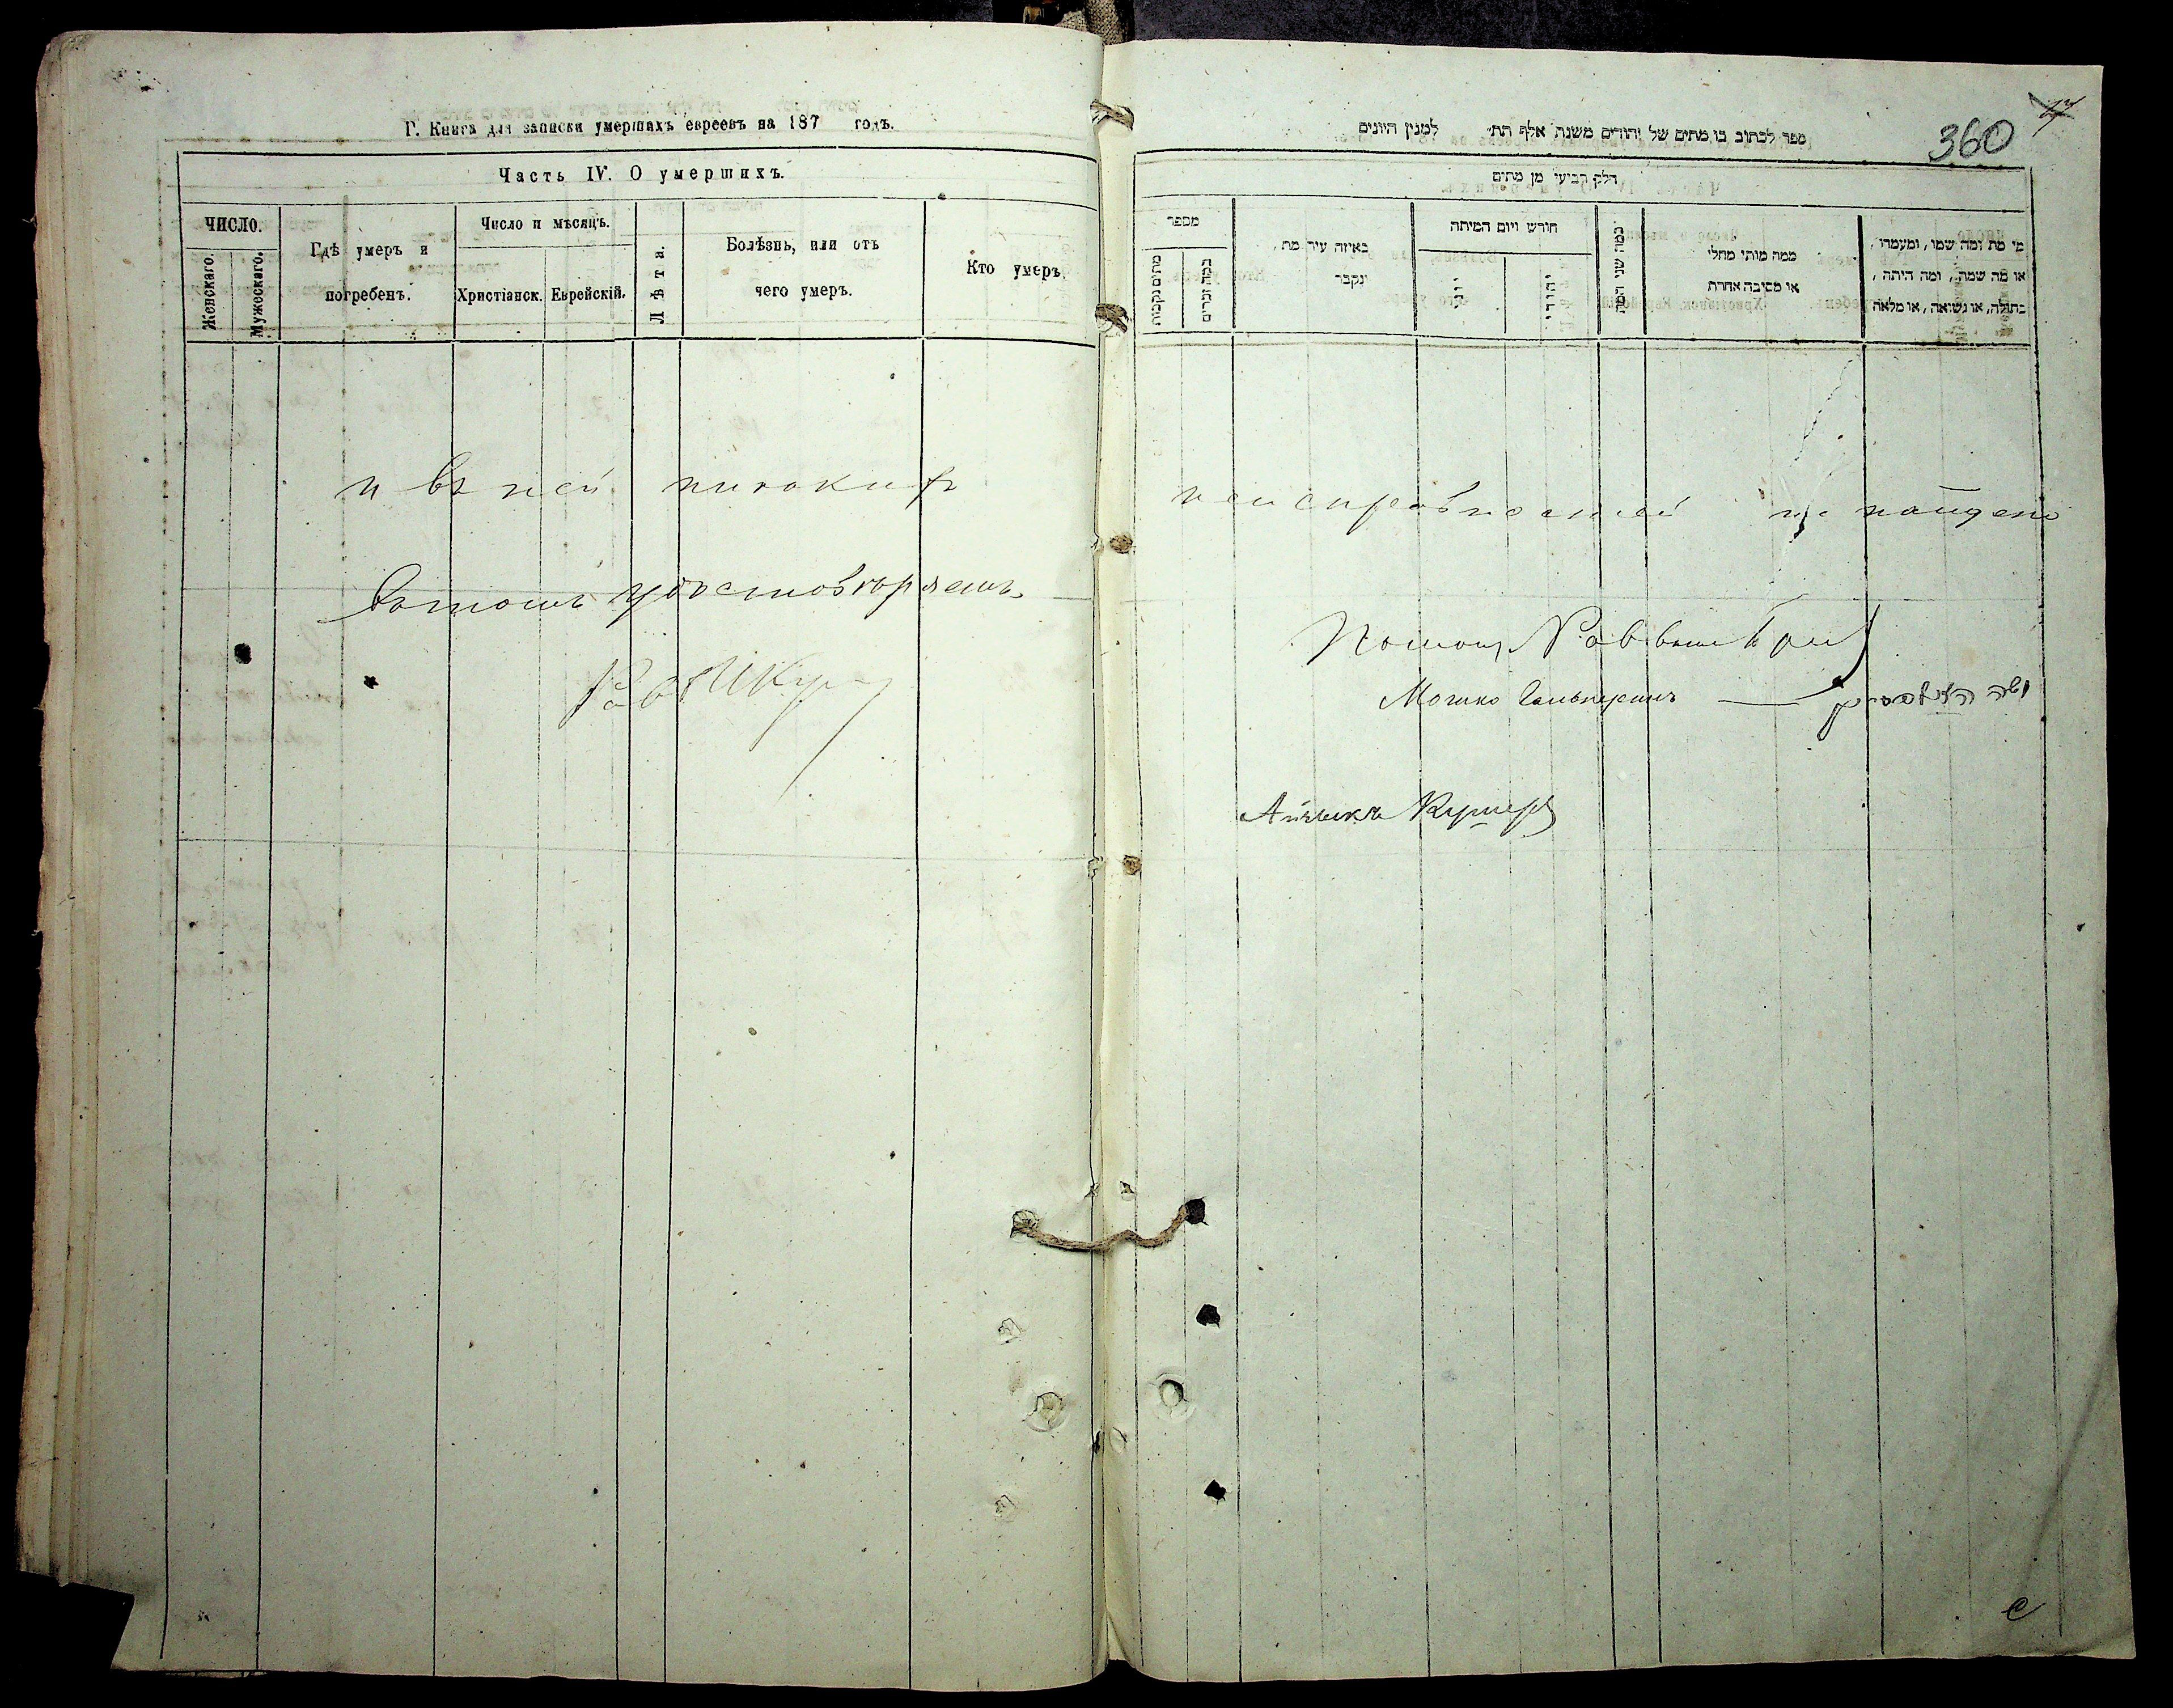 Г. Книга для записки умершихъ евреевъ на 187 годъ.
Часть IV. О умершихъ.
ЧИСЛО.
Женскаго.
Мужескаго.
Гдѣ умеръ и
погребенъ.
Число и мѣсяцъ.
Христіанск.
Еврейскій.
Лѣта.
Болѣзнь, или отъ
чего умеръ.
Кто умеръ.
и въ ней никакихъ
въ томъ удостовѣряемъ
Рав
17
360
ספר לכתוב בו מתים של יהודים משנת אלף תת׳ למנין היונים
חלק רביעי מן מתים
מספר
מתים נקבות
כמה זכרים
באיזה עיר מת
ונקבר
חודש ויום המיתה
יוני
יהודי
כמה שני המת
ממה מותו מחלי
או מסיבה אחרת
מי מת ומה שמו, ומעמדו,
או מה שמה, ומה היתה,
בתולה, או נשואה, או מלאה
неисправностей не найдено
Помощ Раввина
Мошко Гальперинъ
Айзикъ Кушнеръ